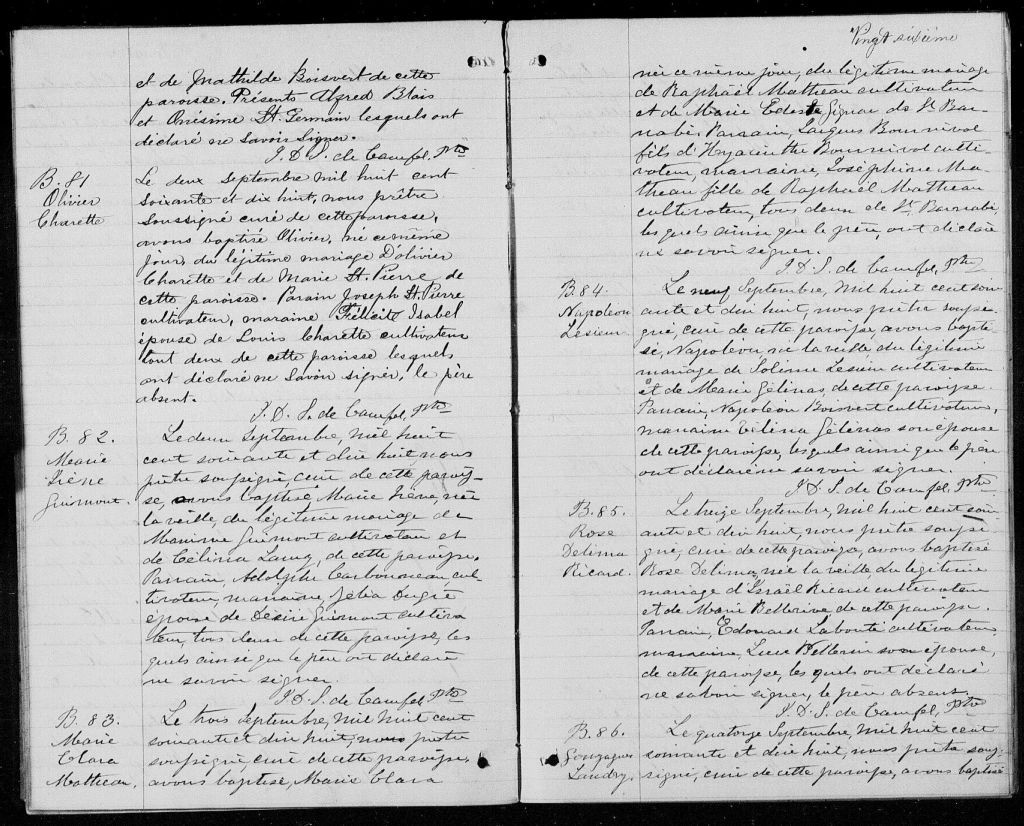 et de Mathilde Boisvert de cette
paroisse. Présents Alfred Blais
et Onésime St. Germain lesquels ont
déclaré ne savoir signer.
J. D. S. de Camfel, Ptre
B. 81
Olivier
Charette
Le deux Septembre mil huit cent
soixante et dix huit, nous prêtre
soussigné curé de cette paroisse,
avons baptisé Olivier, né ce même
jour, du légitime mariage D'olivier
Charette et de Marie St. Pierre, de
cette paroisse. Parain Joseph St. Pierre
cultivateur, maraine Féllicité Isabel
épouse de Louis Charette cultivateur
tout deux de cette paroisse lesquels
ont déclaré ne savoir signer, le père
absent.
J. D. S. de Camfel, Ptre
B. 82.
Marie
Irène
Guimont.
Le deux Septembre, mil huit
cent soixante et dix huit nous
prêtre soussigné, curé de cette parois-
se, avons baptisé Marie Irène, née
la veille, du légitime mariage de
Maxime Guimont cultivateur et
de Célina Lamy, de cette paroisse.
Parrain, Adolphe Carbonneau cul-
tivateur, marraine, Julia Dugré
épouse de Désiré Guimont cultiva
teur, tous deux de cette paroisse, les
quels ainsi que le père ont déclaré
ne savoir signer.
J. D. S. de Camfel, Ptre
B. 83.
Marie
Clara
Matheau.
Le trois Septembre, mil huit cent
soixante et dix huit, nous prêtre
soussigné, curé de cette paroisse,
avons baptisé, Marie Clara
Vingt sixième
née ce même jour, du légitime mariage
de Raphaël Matheau cultivateur
et de Marie Edesse Gignac, de St Bar
nabé. Parrain, Jacques Bournival
fils d'Hyacinthe Bournival culti-
vateur, marraine, Joséphine Ma-
theau fille de Raphaël Matheau
cultivateur, tous deux de St. Barnabé,
lesquels ainsi que le père, ont déclaré
ne savoir signer.
J. D. S. de Camfel, Ptre
B. 84.
Napoléon
Lesieur
Le neuf Septembre, mil huit cent soix
ante et dix huit, nous prêtre soussi-
gné, curé de cette paroisse, avons bapti-
sé, Napoléon né la veille, du légitime
mariage de Solime Lesieur cultivateur
et de Marie Gélinas de cette paroisse.
Parrain, Napoléon Boisvert cultivateur,
marraine Célina Gélinas son épouse
de cette paroisse, lesquels ainsi que le père
ont déclaré ne savoir signer.
J. D. S. de Camfel, Ptre
B. 85.
Rose
Delima
Ricard.
Le treize Septembre, mil huit cent soix
ante et dix huit, nous prêtre soussi
gné, curé de cette paroisse, avons baptisé
Rose Delima, née la veille, du légitime
mariage d'Israël Ricard cultivateur
et de Marie Bellerive de cette paroisse.
Parrain, Edouard Labonté cultivateur,
marraine, Luce Bellerive son épouse,
de cette paroisse, les quels ont déclaré
ne savoir signer, le père absent.
J. D. S. de Camfel, Ptre
B. 86.
Gonzague
Landry.
Le quatorze Septembre, mil huit cent
soixante et dix huit, nous prêtre sous-
signé, curé de cette paroisse, avons baptisé